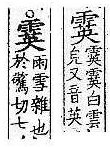 霙霙霙白雲
皃又音英
○霙雨雪雜也
於驚切七